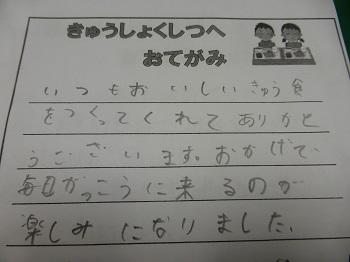 きゅうしょくしつへ
おてがみ
いつもおいしいきゅう食
をつくってくれてありがと
うございます。おかげで、
毎日がっこうに来るのが
楽しみになりました。